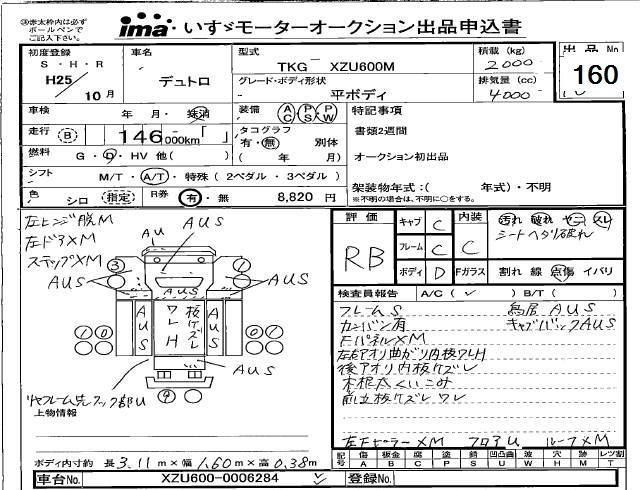 ※赤太枠内は必ずボールペンでご記入下さい。
ima いすゞモーターオークション出品申込書
初度登録 S・H・R H25 / 10月
車名 デュトロ
型式 TKG XZU600M
グレード・ボディ形状 平ボディ
積載(kg) 2000
排気量(cc) 4000
出品No 160
車検 年・月・抹消
装備 AC PS PW
特記事項
書類2週間
オークション初出品
架装物年式:( 年式)・不明
※不明の場合は、不明に○をする。
走行 B 146,000km「 」
タコグラフ 有・無 別体 ( 年 月)
燃料 G・D・HV 他( )
シフト M/T・A/T・特殊(2ペダル・3ペダル)
色 シロ 指定
R券 有・無 8,820円
左ヒンジ脱M
左ドアXM
ステップXM
AUS
AU
AUS
AUS
AUS
3
1
AUS
AUS
AUS
ワレH
板ケズレ
1 0
0 1
AUS
4
上物情報
ボディ内寸約 長3.11m×幅1.60m×高0.38m
車台No. XZU600-0006284
登録No.
評価 RB
キャブ C
フレーム C
ボディ D
内装 C
汚れ 破れ ヤニ スレ
シートヘタリ破れ
Fガラス 割れ 線 点傷 イバリ
検査員報告 A/C( ✓ ) B/T( )
フレームS
鳥居AUS
カンバン有
キャブバックAUS
FパネルXM
左右アオリ曲がり内板ワレH
後アオリ内板ケズレ
木根太くいこみ
前立板ケズレワレ
左FピラーXM フロアU ルーフXM
記号 傷A 板金B 腐C 塗P 錆S 凹凸曲U 波W 穴H 跡M レツ割T